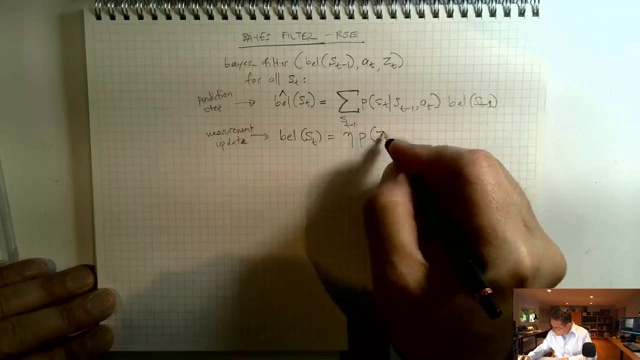 BAYES FILTER - RSE
bayes filter (bel(S_{t-1}), a_t, z_t)
for all S_t:
prediction step → bel̂(S_t) = ∑_{S_{t-1}} p(S_t | S_{t-1}, a_t) bel(S_{t-1})
measurement update → bel(S_t) = η p(z